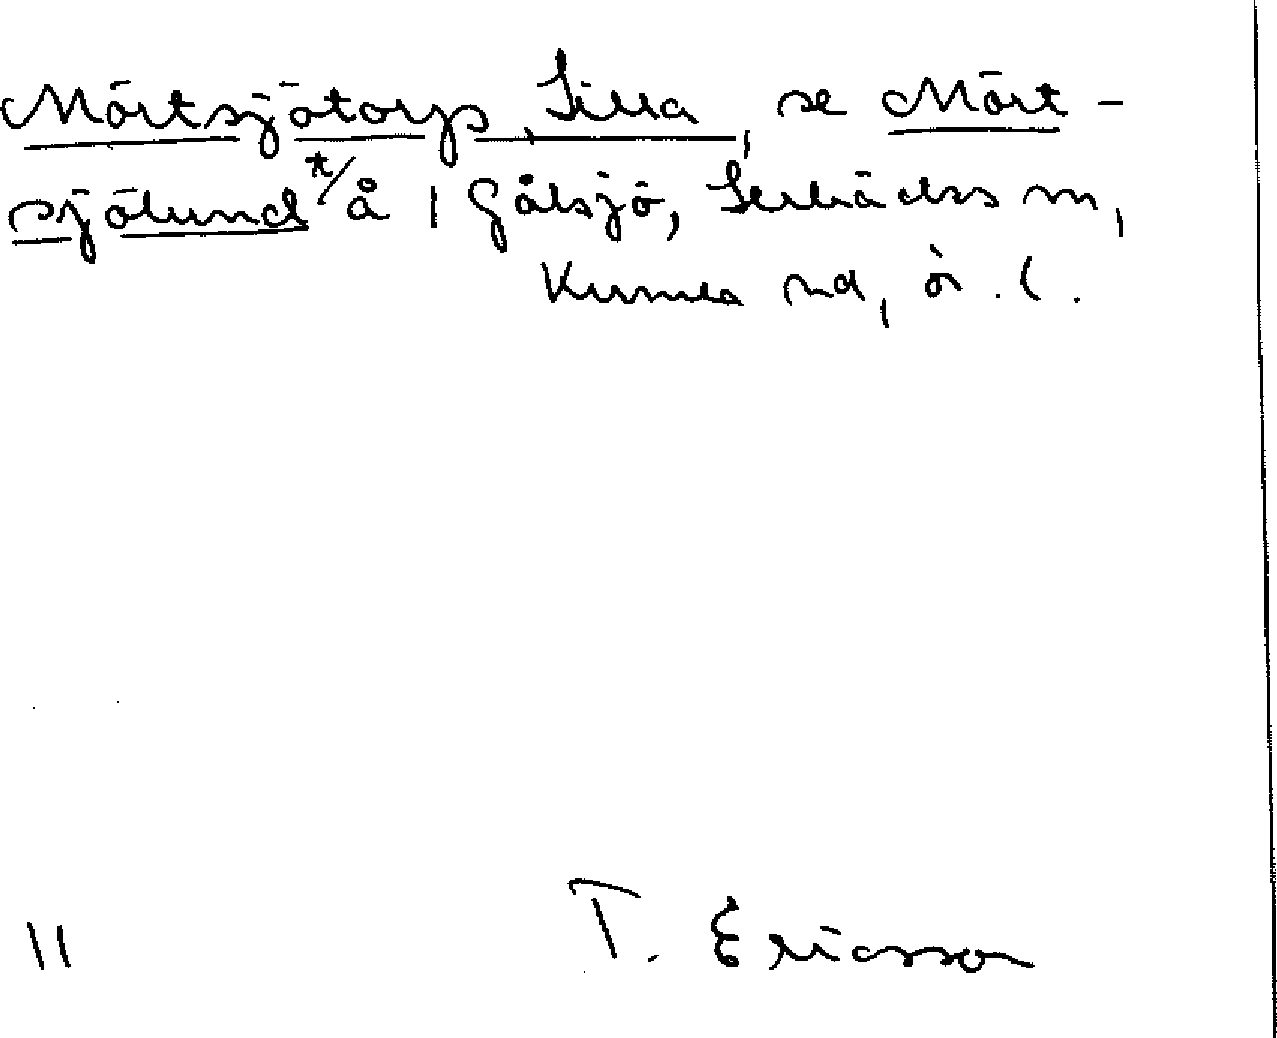 Mörtsjötorp, Lilla, se Mört-
sjölund */å 1 Gålsjö, Lerbäcks sn,
Kumla hd, Ör. l.
11 T. Ericsson